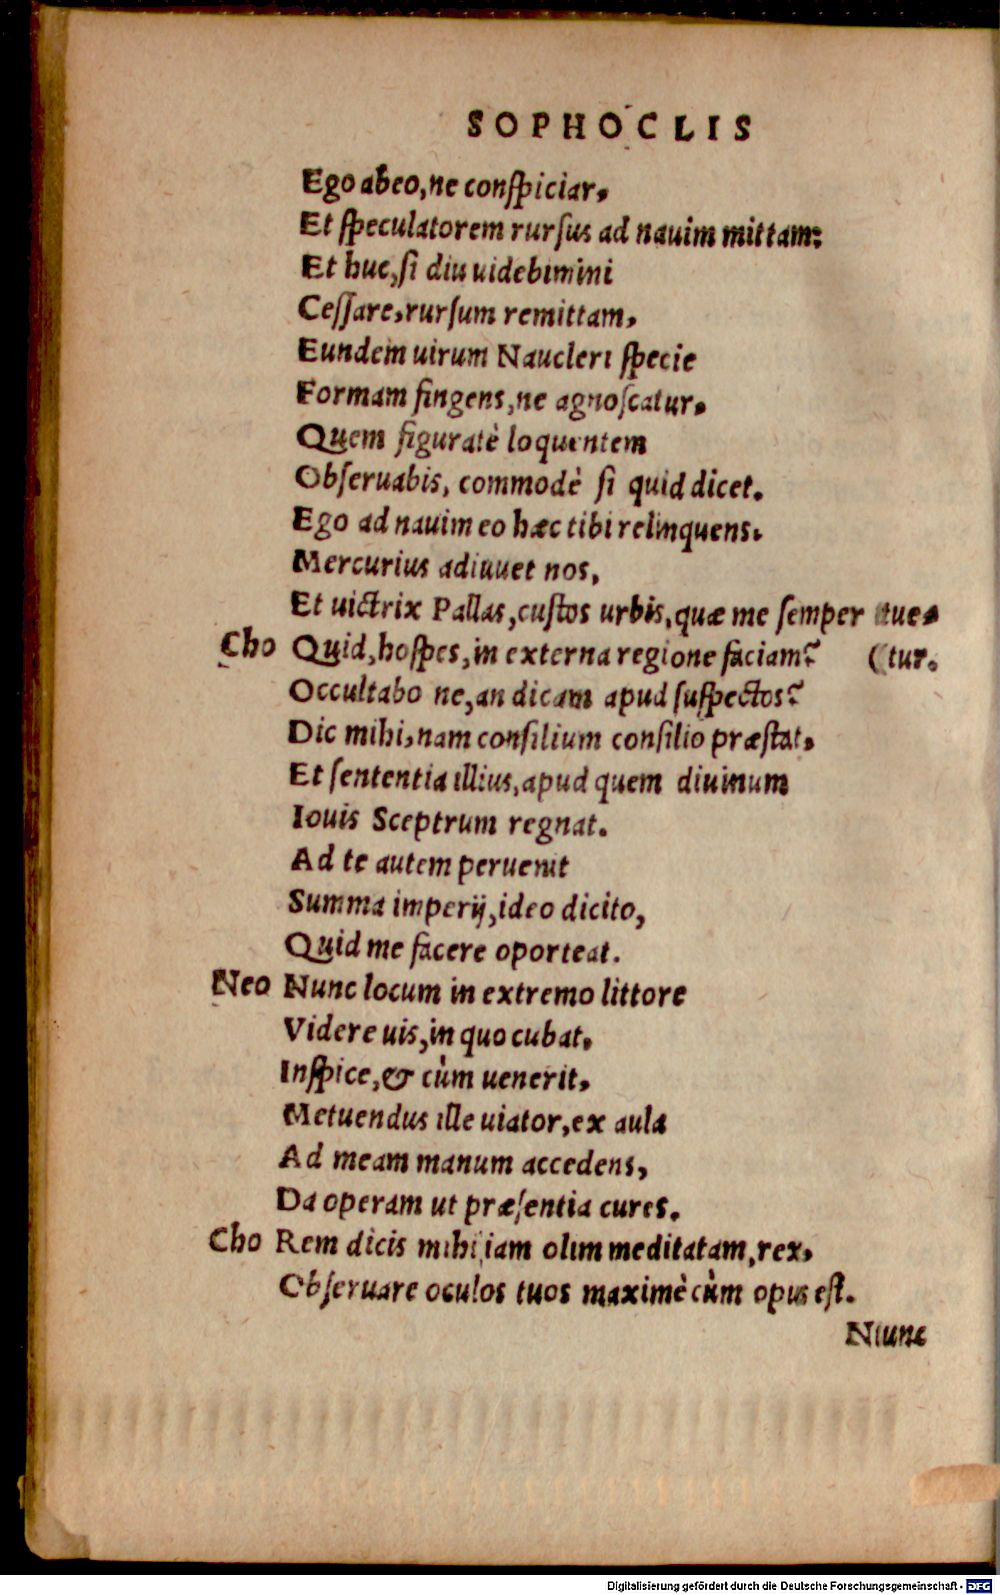 SOPHOCLIS
Ego abeo, ne conspiciar,
Et speculatorem rursus ad nauim mittam:
Et huc, si diu uidebimini
Cessare, rursum remittam,
Eundem uirum Naucleri specie
Formam fingens, ne agnoscatur,
Quem figuratè loquentem
Obseruabis, commodè si quid dicet.
Ego ad nauim eo hæc tibi relinquens.
Mercurius adiuuet nos,
Et uictrix Pallas, custos urbis, quæ me semper tue-
Cho Quid, hospes, in externa regione faciam? (tur.
Occultabo ne, an dicam apud suspectos?
Dic mihi, nam consilium consilio præstat,
Et sententia illius, apud quem diuinum
Iouis Sceptrum regnat.
Ad te autem peruenit
Summa imperij, ideo dicito,
Quid me facere oporteat.
Neo Nunc locum in extremo littore
Videre uis, in quo cubat,
Inspice, & cùm uenerit,
Metuendus ille uiator, ex aula
Ad meam manum accedens,
Da operam ut præsentia cures.
Cho Rem dicis mihi iam olim meditatam, rex,
Obseruare oculos tuos maximè cùm opus est.
Nunc
Digitalisierung gefördert durch die Deutsche Forschungsgemeinschaft - DFG